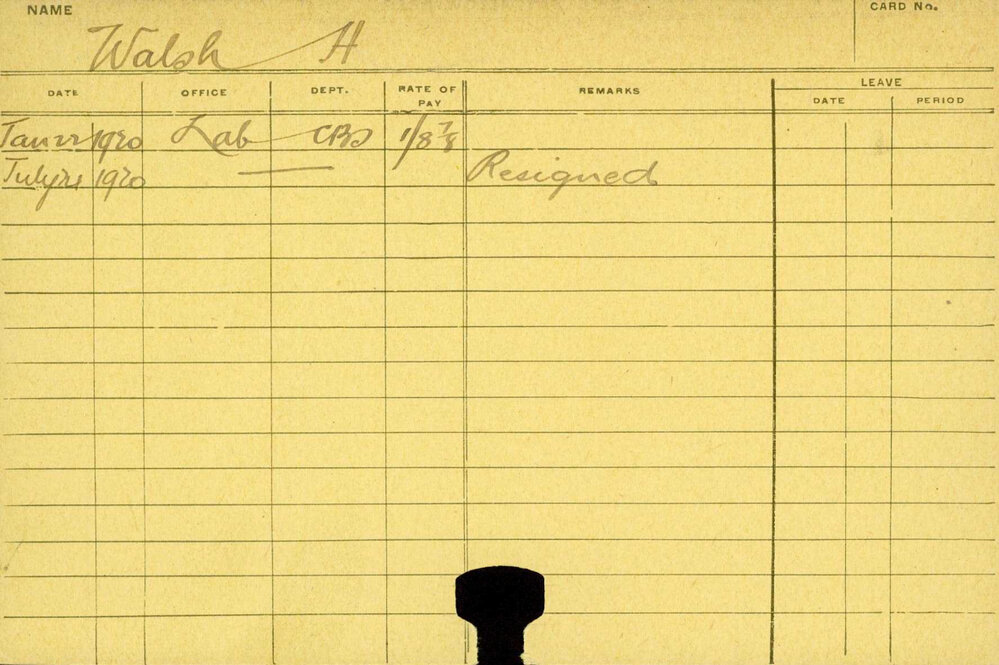 NAME CARD No.
Walsh H
DATE OFFICE DEPT. RATE OF PAY REMARKS LEAVE
DATE PERIOD
Jan 22 1920 Lab CBS 1/8 7/8
July 21 1920 — Resigned